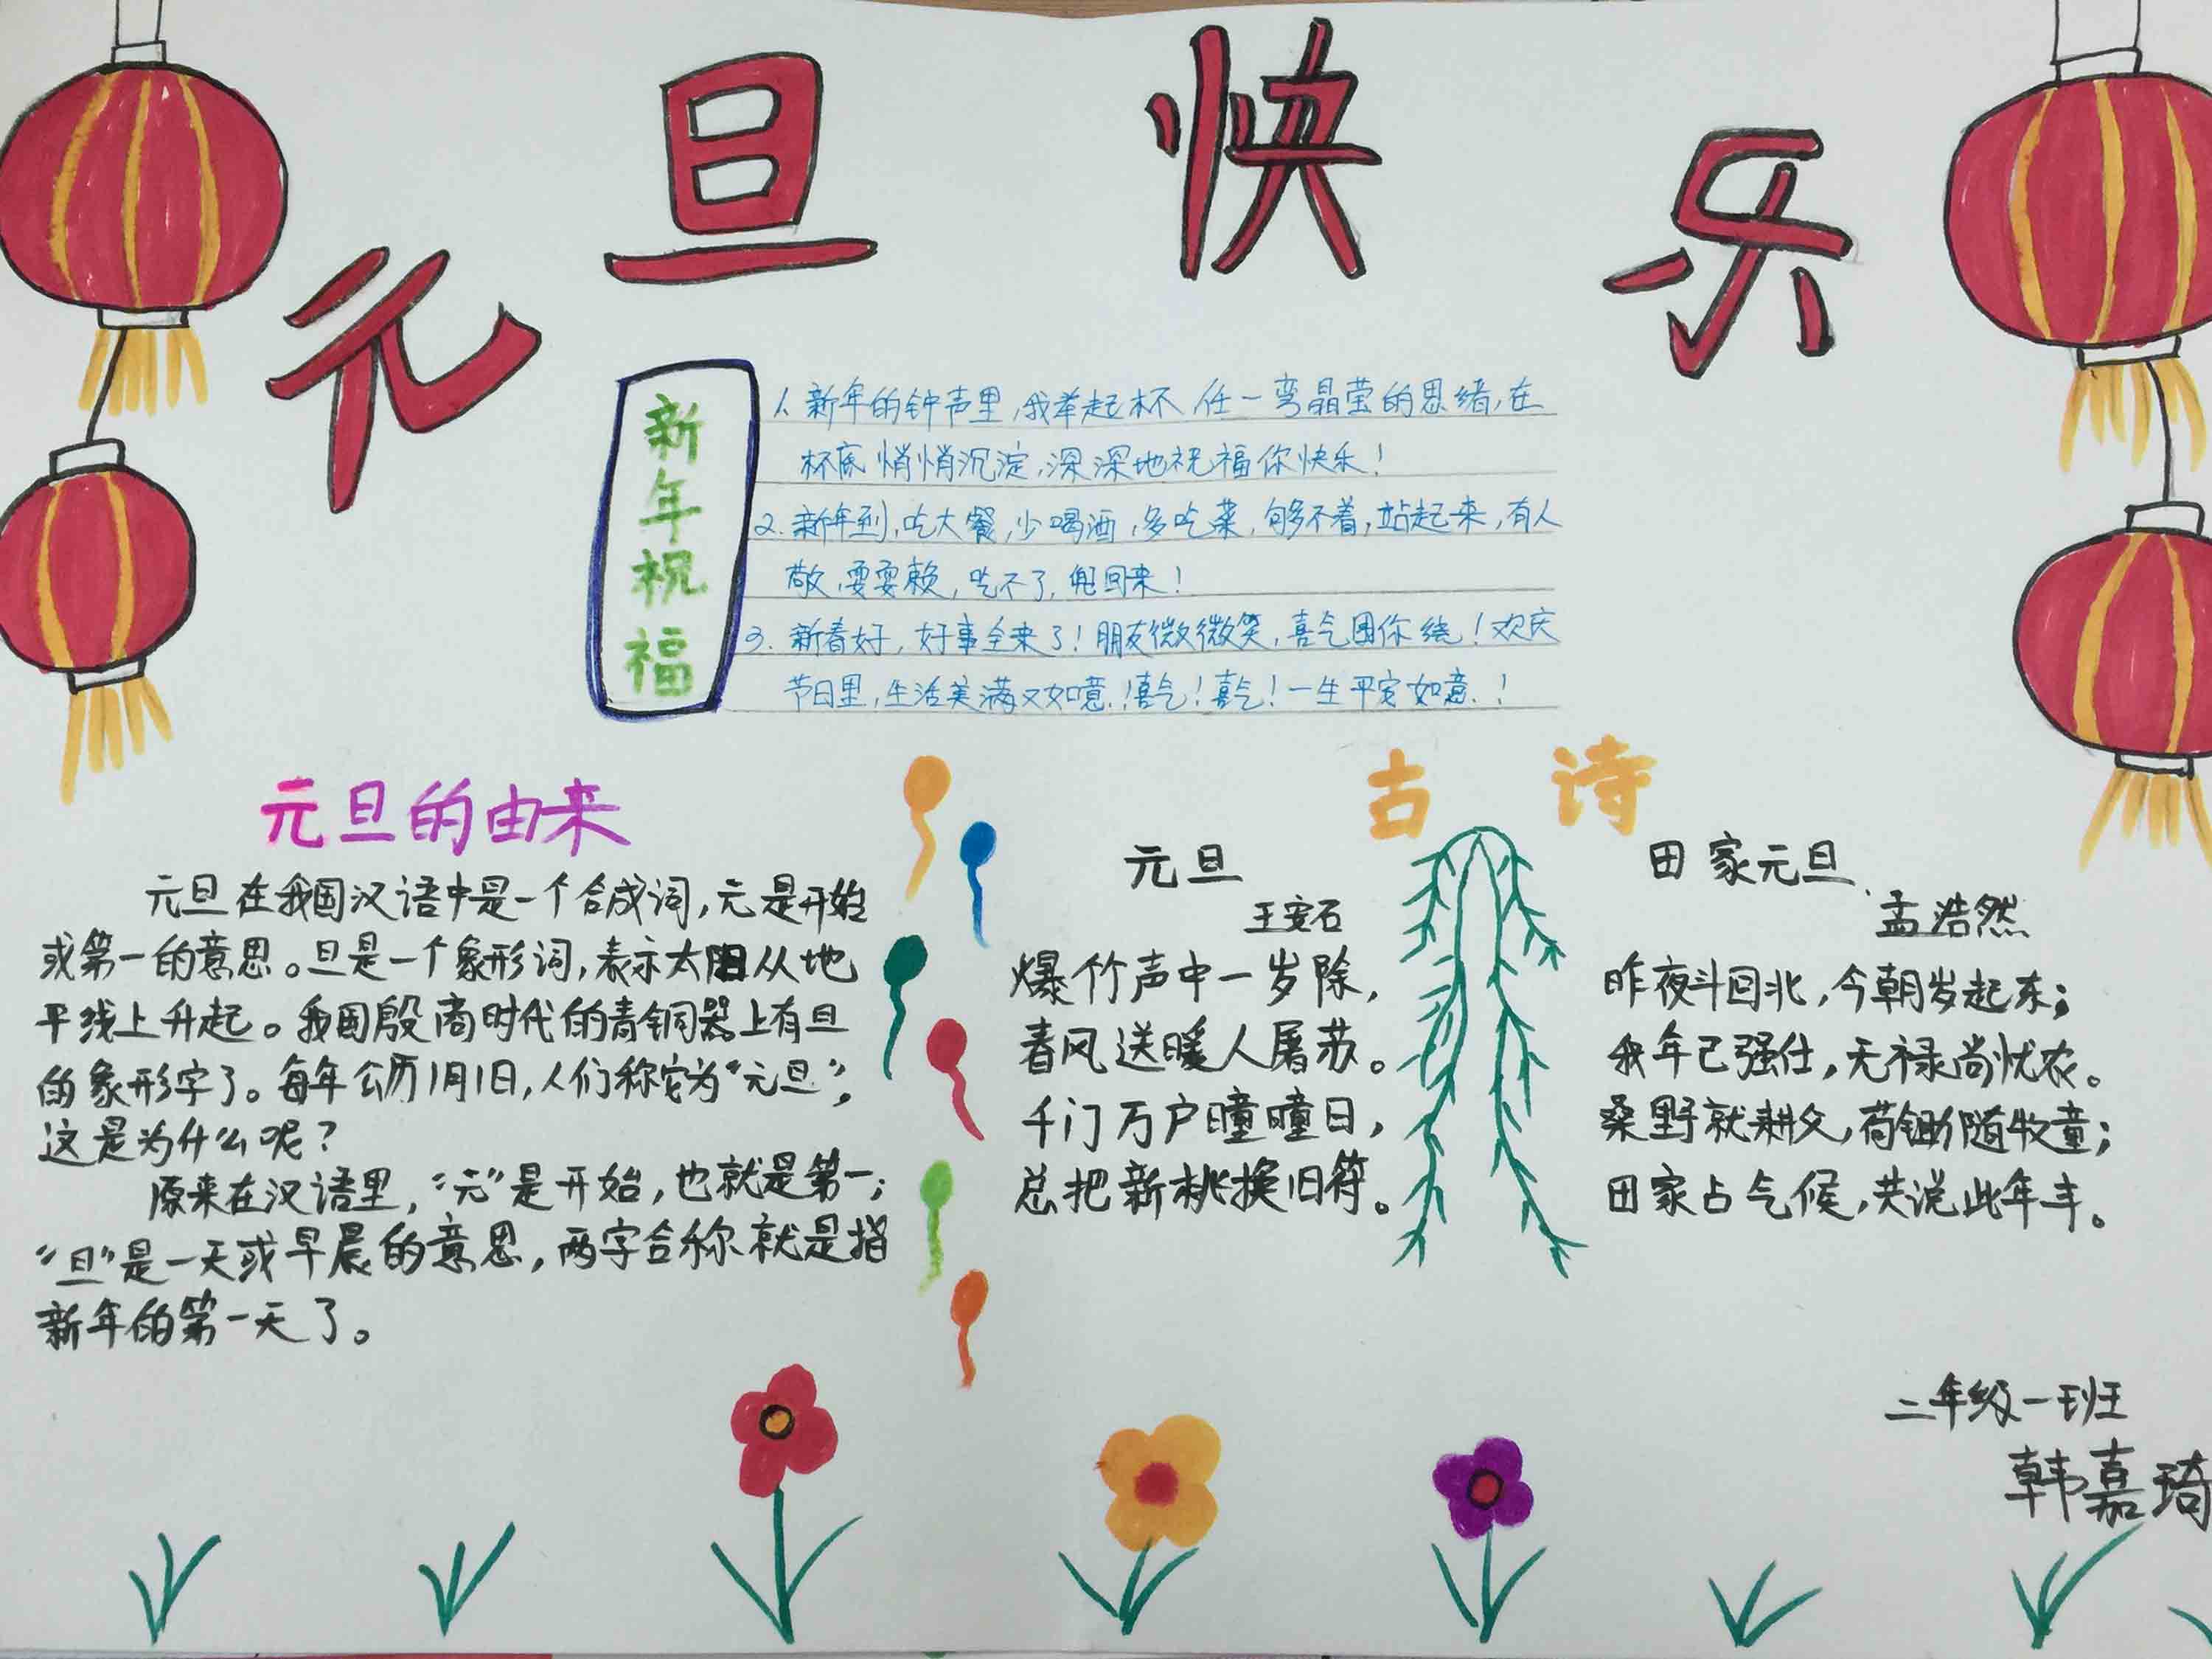 元旦快乐
新年祝福
1、新年的钟声里,我举起杯,任一弯晶莹的思绪,在
杯底悄悄沉淀,深深地祝福你快乐!
2.新年到,吃大餐,少喝酒,多吃菜,够不着,站起来,有人
敬,耍耍赖,吃不了,兜回来!
3.新春好,好事全来了!朋友微微笑,喜气围你绕!欢庆
节日里,生活美满又如意!喜气!喜气!一生平安如意!
元旦的由来
元旦在我国汉语中是一个合成词,元是开始
或第一的意思。旦是一个象形词,表示太阳从地
平线上升起。我国殷商时代的青铜器上有旦
的象形字了。每年公历1月1日,人们称它为“元旦”,
这是为什么呢?
原来在汉语里,“元”是开始,也就是第一;
“旦”是一天或早晨的意思,两字合称就是指
新年的第一天了。
古诗
元旦
王安石
爆竹声中一岁除,
春风送暖人屠苏。
千门万户曈曈日,
总把新桃换旧符。
田家元旦
孟浩然
昨夜斗回北,今朝岁起东;
我年已强仕,无禄尚忧农。
桑野就耕父,荷锄随牧童;
田家占气候,共说此年丰。
二年级一班
韩嘉琦